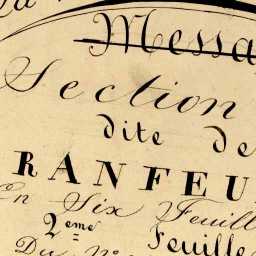 Messa
Section
dite de
RANFEU
En Six Feuill
2eme Feuille
Du No